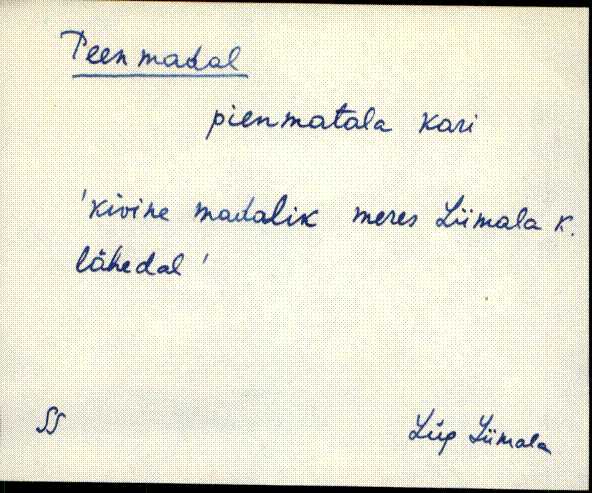 Peenmadal
pienmatala kari
'kivine madalik meres Liimala k.
lähedal'
SS
Lüg Liimala